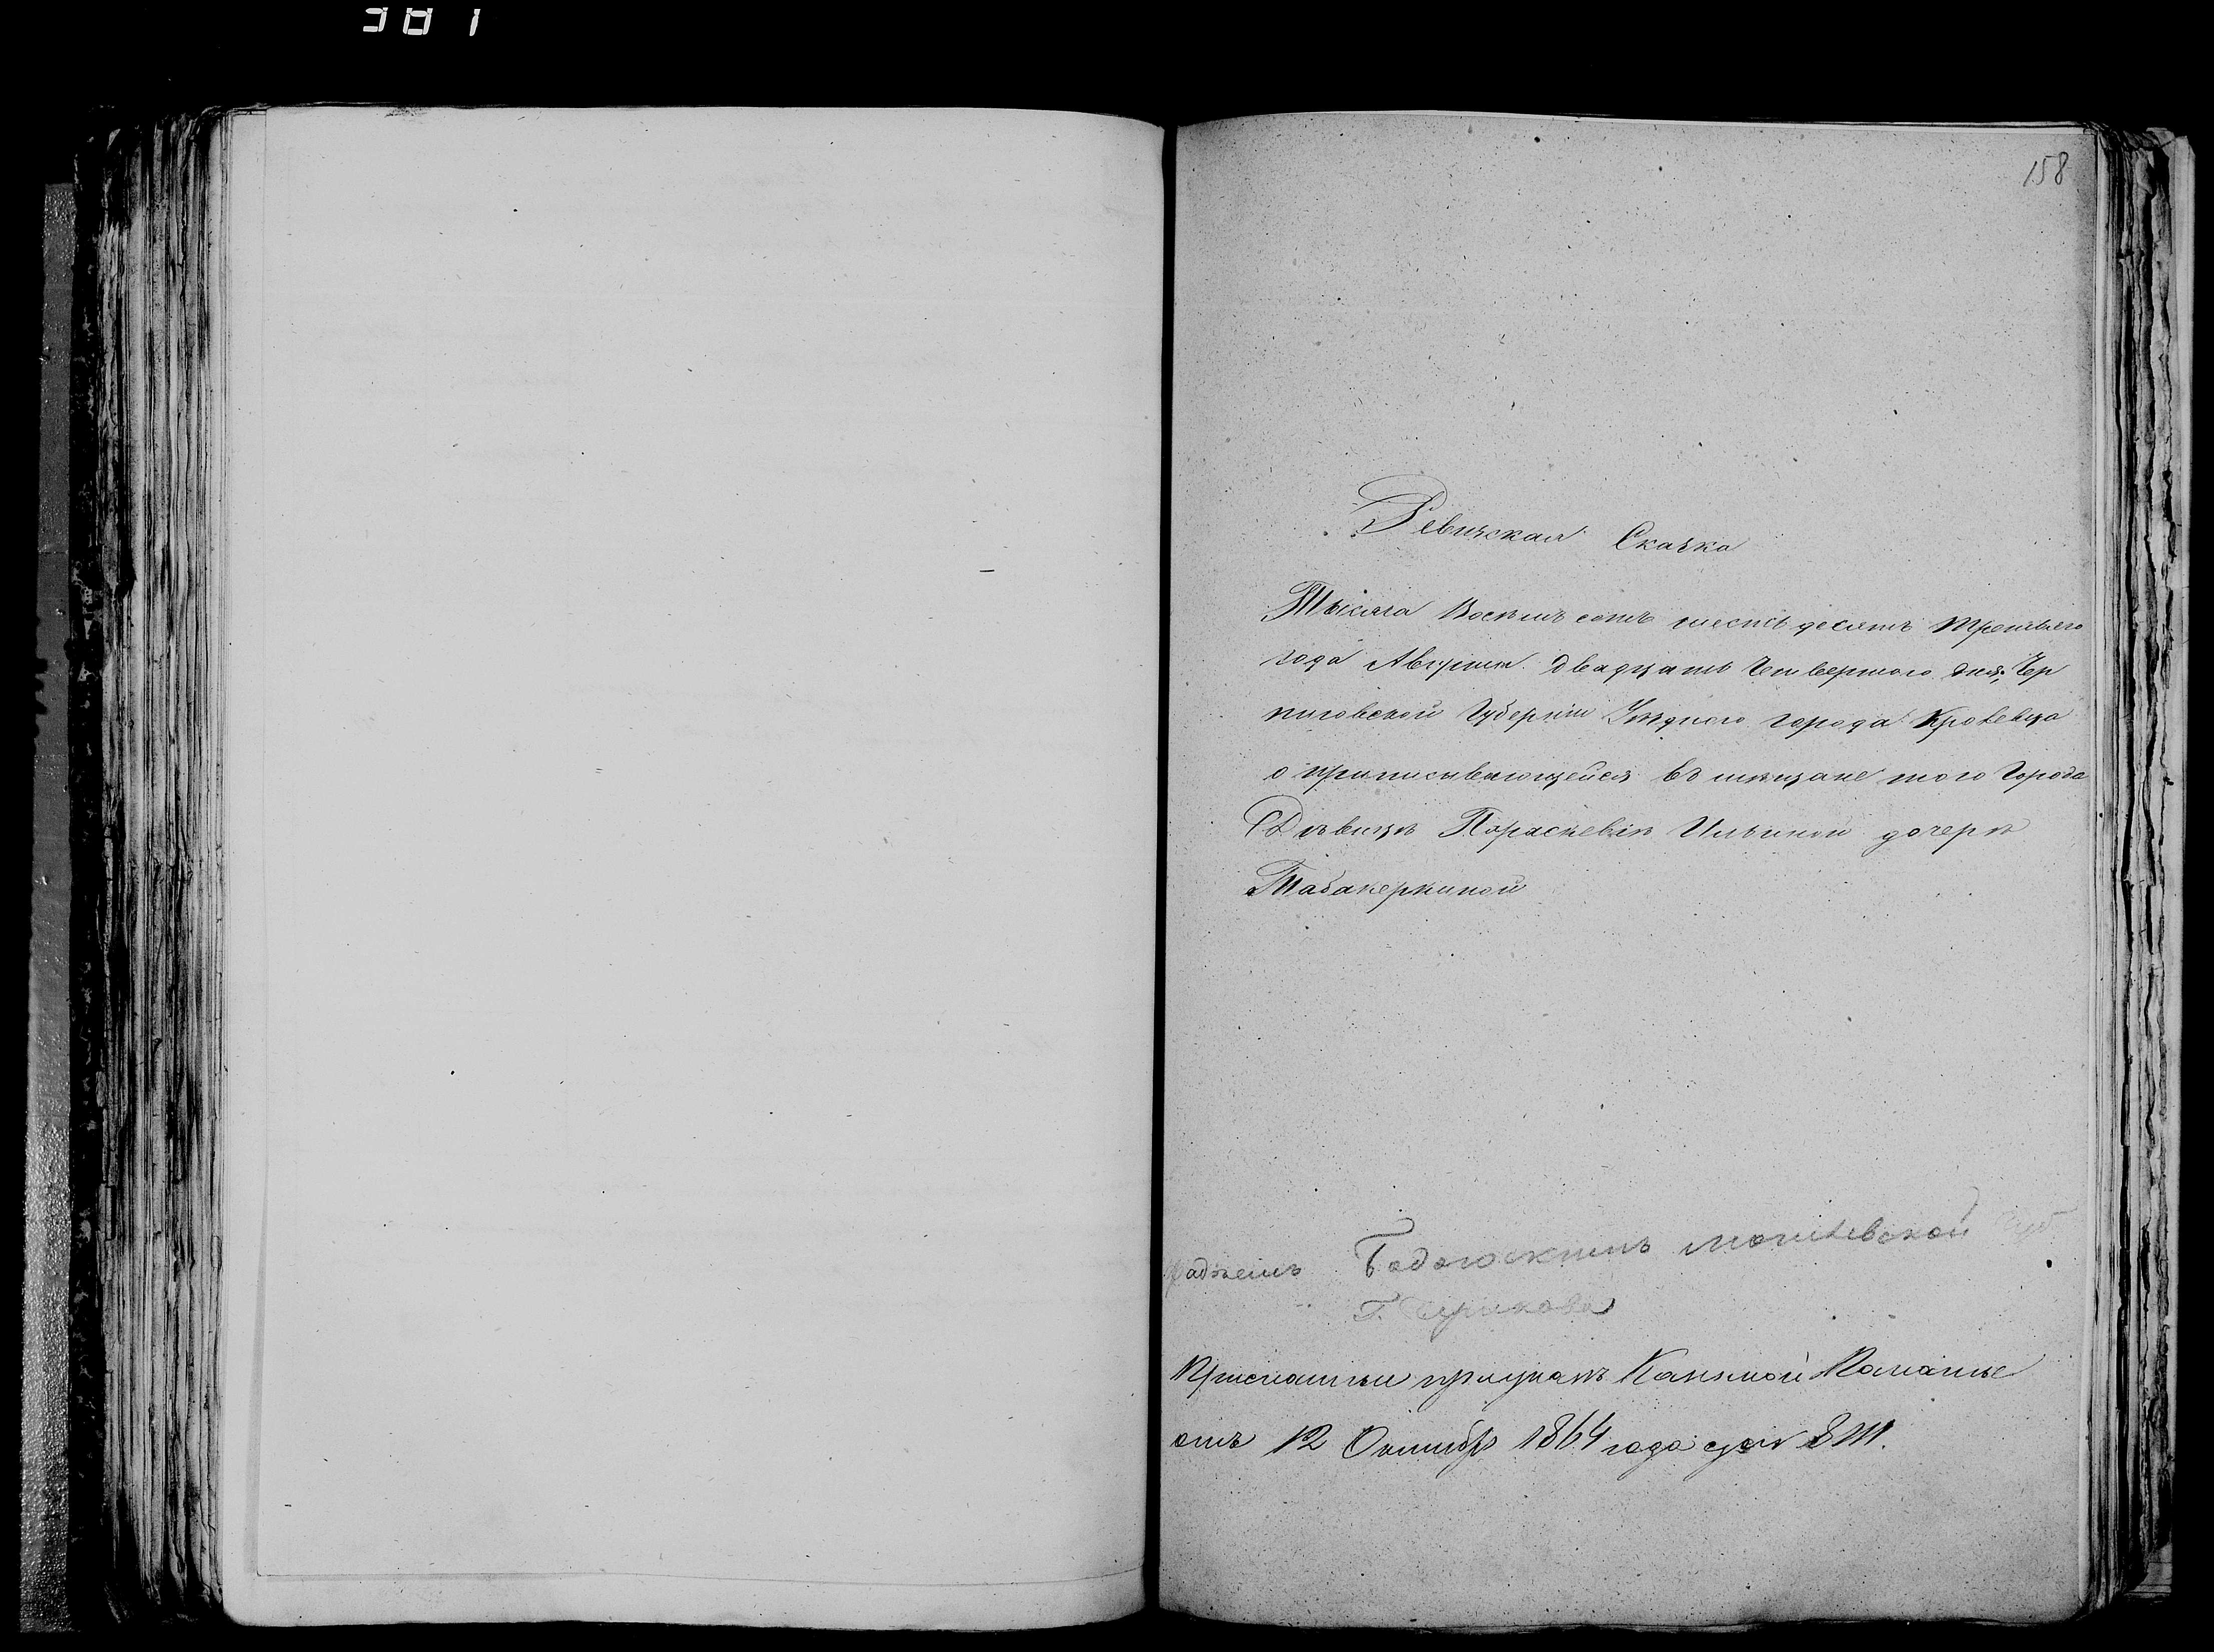 381
158
Ревизская Сказка
Тысяча Восемь сотъ шестьдесятъ Третьяго
года Августа двадцать Четвертого дня, Чер
ниговской Губерніи Уезднаго города Кролевца
о приписывающейся въ мещане того Города
Девице Параскевіи Ильиной дочере
Табакеркиной
Могилевской Губ
Г. Черикова
от 12 Октября 1864 года